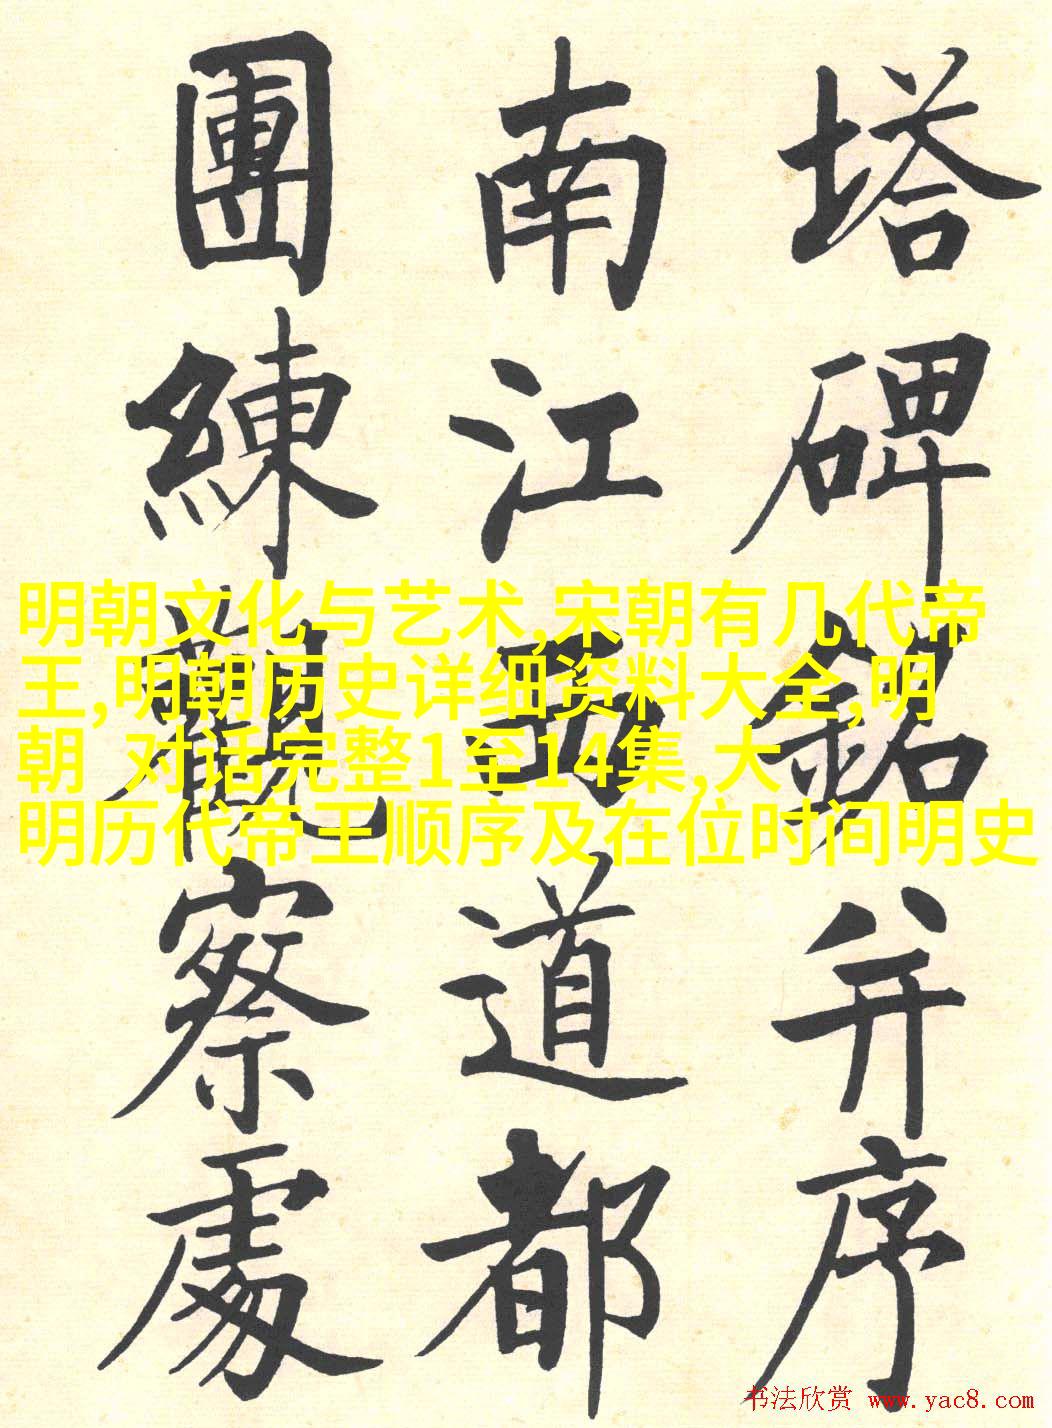 塔碑銘并序
南江西道都
團練觀察處
明朝文化与艺术,宋朝有几代帝
王,明朝历史详细资料大全,明
朝 对话完整1至14集,大
明历代帝王顺序及在位时间明史
书法欣赏 www.yac8.com